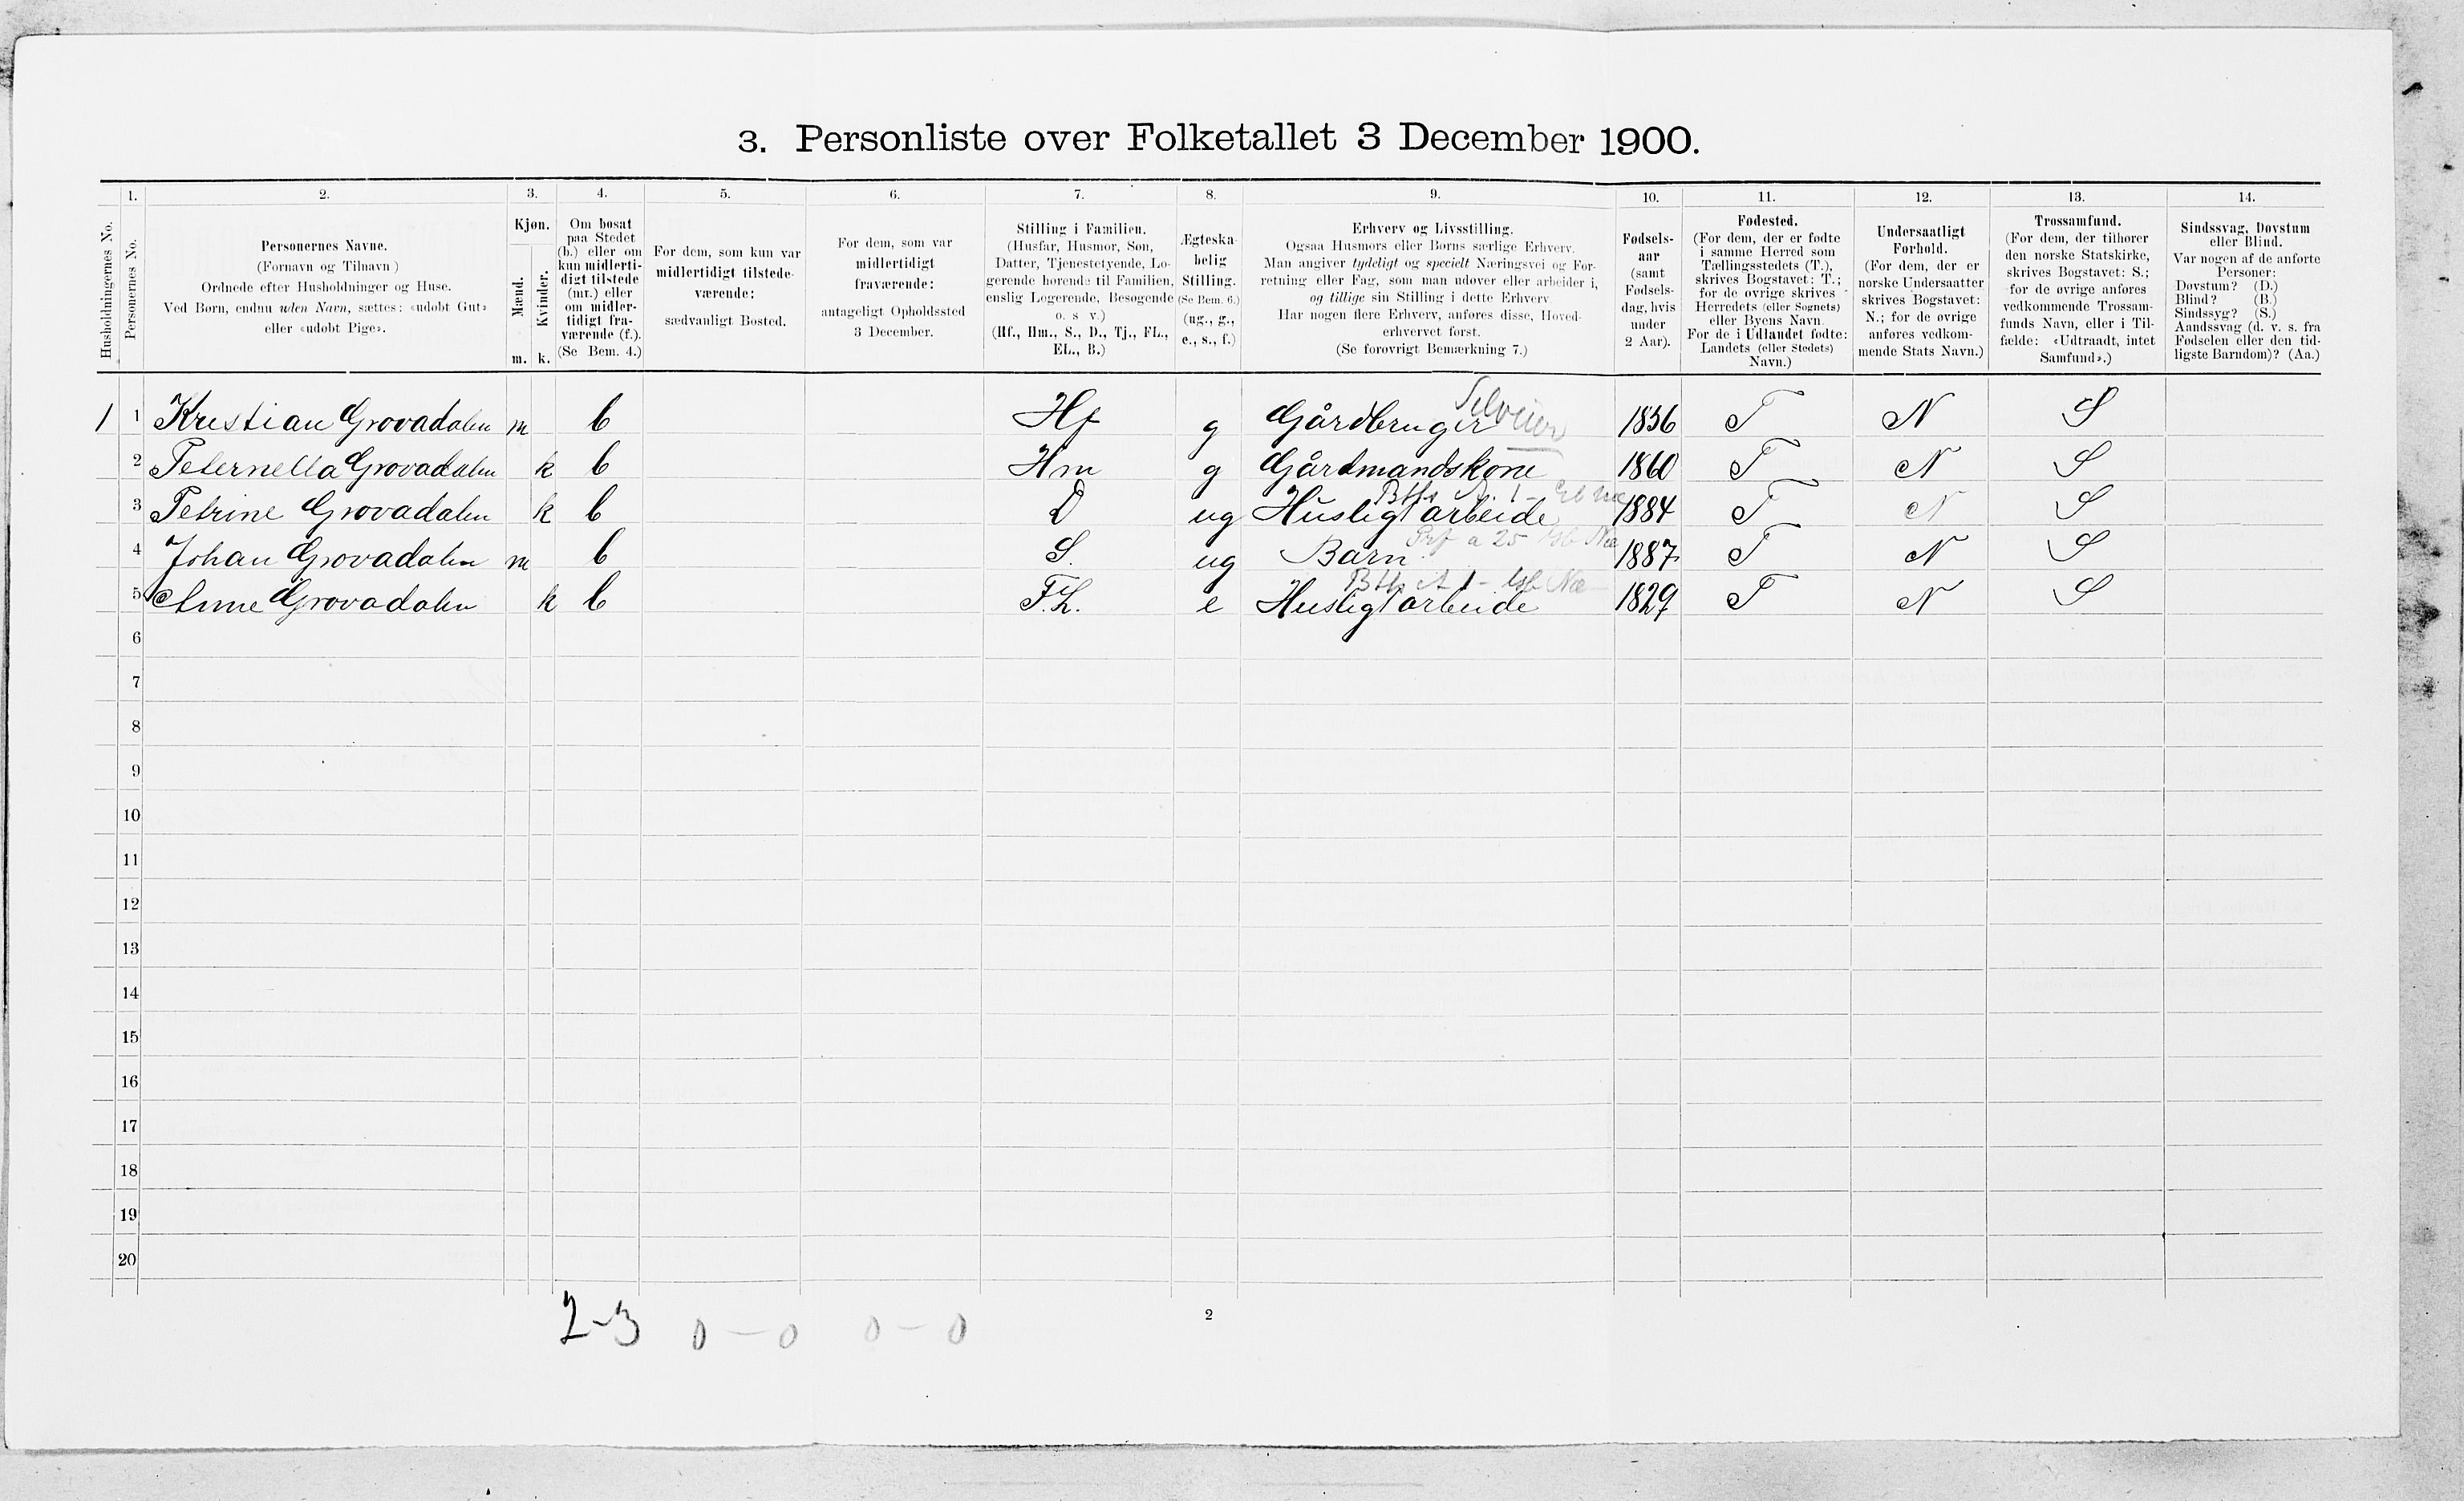 3. Personliste over Folketallet 3 December 1900.
Husholdningernes No.
1.
Personernes No.
2.
Personernes Navne.
(Fornavn og Tilnavn)
Ordnede efter Husholdninger og Huse.
Ved Børn, endnu uden Navn, sættes: «udøbt Gut»
eller «udøbt Pige».
3.
Kjøn.
Mænd.
Kvinder.
m. k.
4.
Om bosat
paa Stedet
(b.) eller om
kun midlerti-
digt tilstede
(mt.) eller
om midler-
tidigt fra-
værende (f.).
(Se Bem. 4.)
5.
For dem, som kun var
midlertidigt tilstede-
værende:
sædvanligt Bosted.
6.
For dem, som var
midlertidigt
fraværende:
antageligt Opholdssted
3 December.
7.
Stilling i Familien.
(Husfar, Husmor, Søn,
Datter, Tjenestetyende, Lo-
gerende hørende til Familien,
enslig Logerende, Besøgende
o. s. v.)
(Hf., Hm., S., D., Tj., FL.,
EL., B.)
8.
Ægteska-
belig
Stilling.
(Se Bem. 6.)
(ug., g.,
e., s., f.)
9.
Erhverv og Livsstilling.
Ogsaa Husmors eller Børns særlige Erhverv.
Man angiver tydeligt og specielt Næringsvei og For-
retning eller Fag, som man udøver eller arbeider i,
og tillige sin Stilling i dette Erhverv.
Har nogen flere Erhverv, anføres disse, Hoved-
erhvervet først.
(Se forøvrigt Bemærkning 7.)
10.
Fødsels-
aar
(samt
Fødsels-
dag, hvis
under
2 Aar).
11.
Fødested.
(For dem, der er fødte
i samme Herred som
Tællingsstedets (T.),
skrives Bogstavet: T.;
for de øvrige skrives
Herredets (eller Sognets)
eller Byens Navn.
For de i Udlandet fødte:
Landets (eller Stedets)
Navn.)
12.
Undersaatligt
Forhold.
(For dem, der er
norske Undersaatter
skrives Bogstavet:
N.; for de øvrige
anføres vedkom-
mende Stats Navn.)
13.
Trossamfund.
(For dem, der tilhører
den norske Statskirke,
skrives Bogstavet: S.;
for de øvrige anføres
vedkommende Trossam-
funds Navn, eller i Til-
fælde: «Udtraadt, intet
Samfund».)
14.
Sindssvag, Døvstum
eller Blind.
Var nogen af de anførte
Personer:
Døvstum? (D.)
Blind? (B.)
Sindssyg? (S.)
Aandssvag (d. v. s. fra
Fødselen eller den tid-
ligste Barndom)? (Aa.)
Selveier
1 1 Kristian Grovadalen m b Hf g Gårdbruger 1836 T N S
2 Peternella Grovadalen k b Hm g Gårdmandskone 1860 T N S
3 Petrine Grovadalen k b D ug Husligt arbeide 1884 T N S
4 Johan Grovadalen m b S. ug Barn 1887 T N S
5 Anne Grovadalen k b F.L. e Husligt arbeide 1829 T N S
6
7
8
9
10
11
12
13
14
15
16
17
18
19
20
2-3 0-0 0-0
2